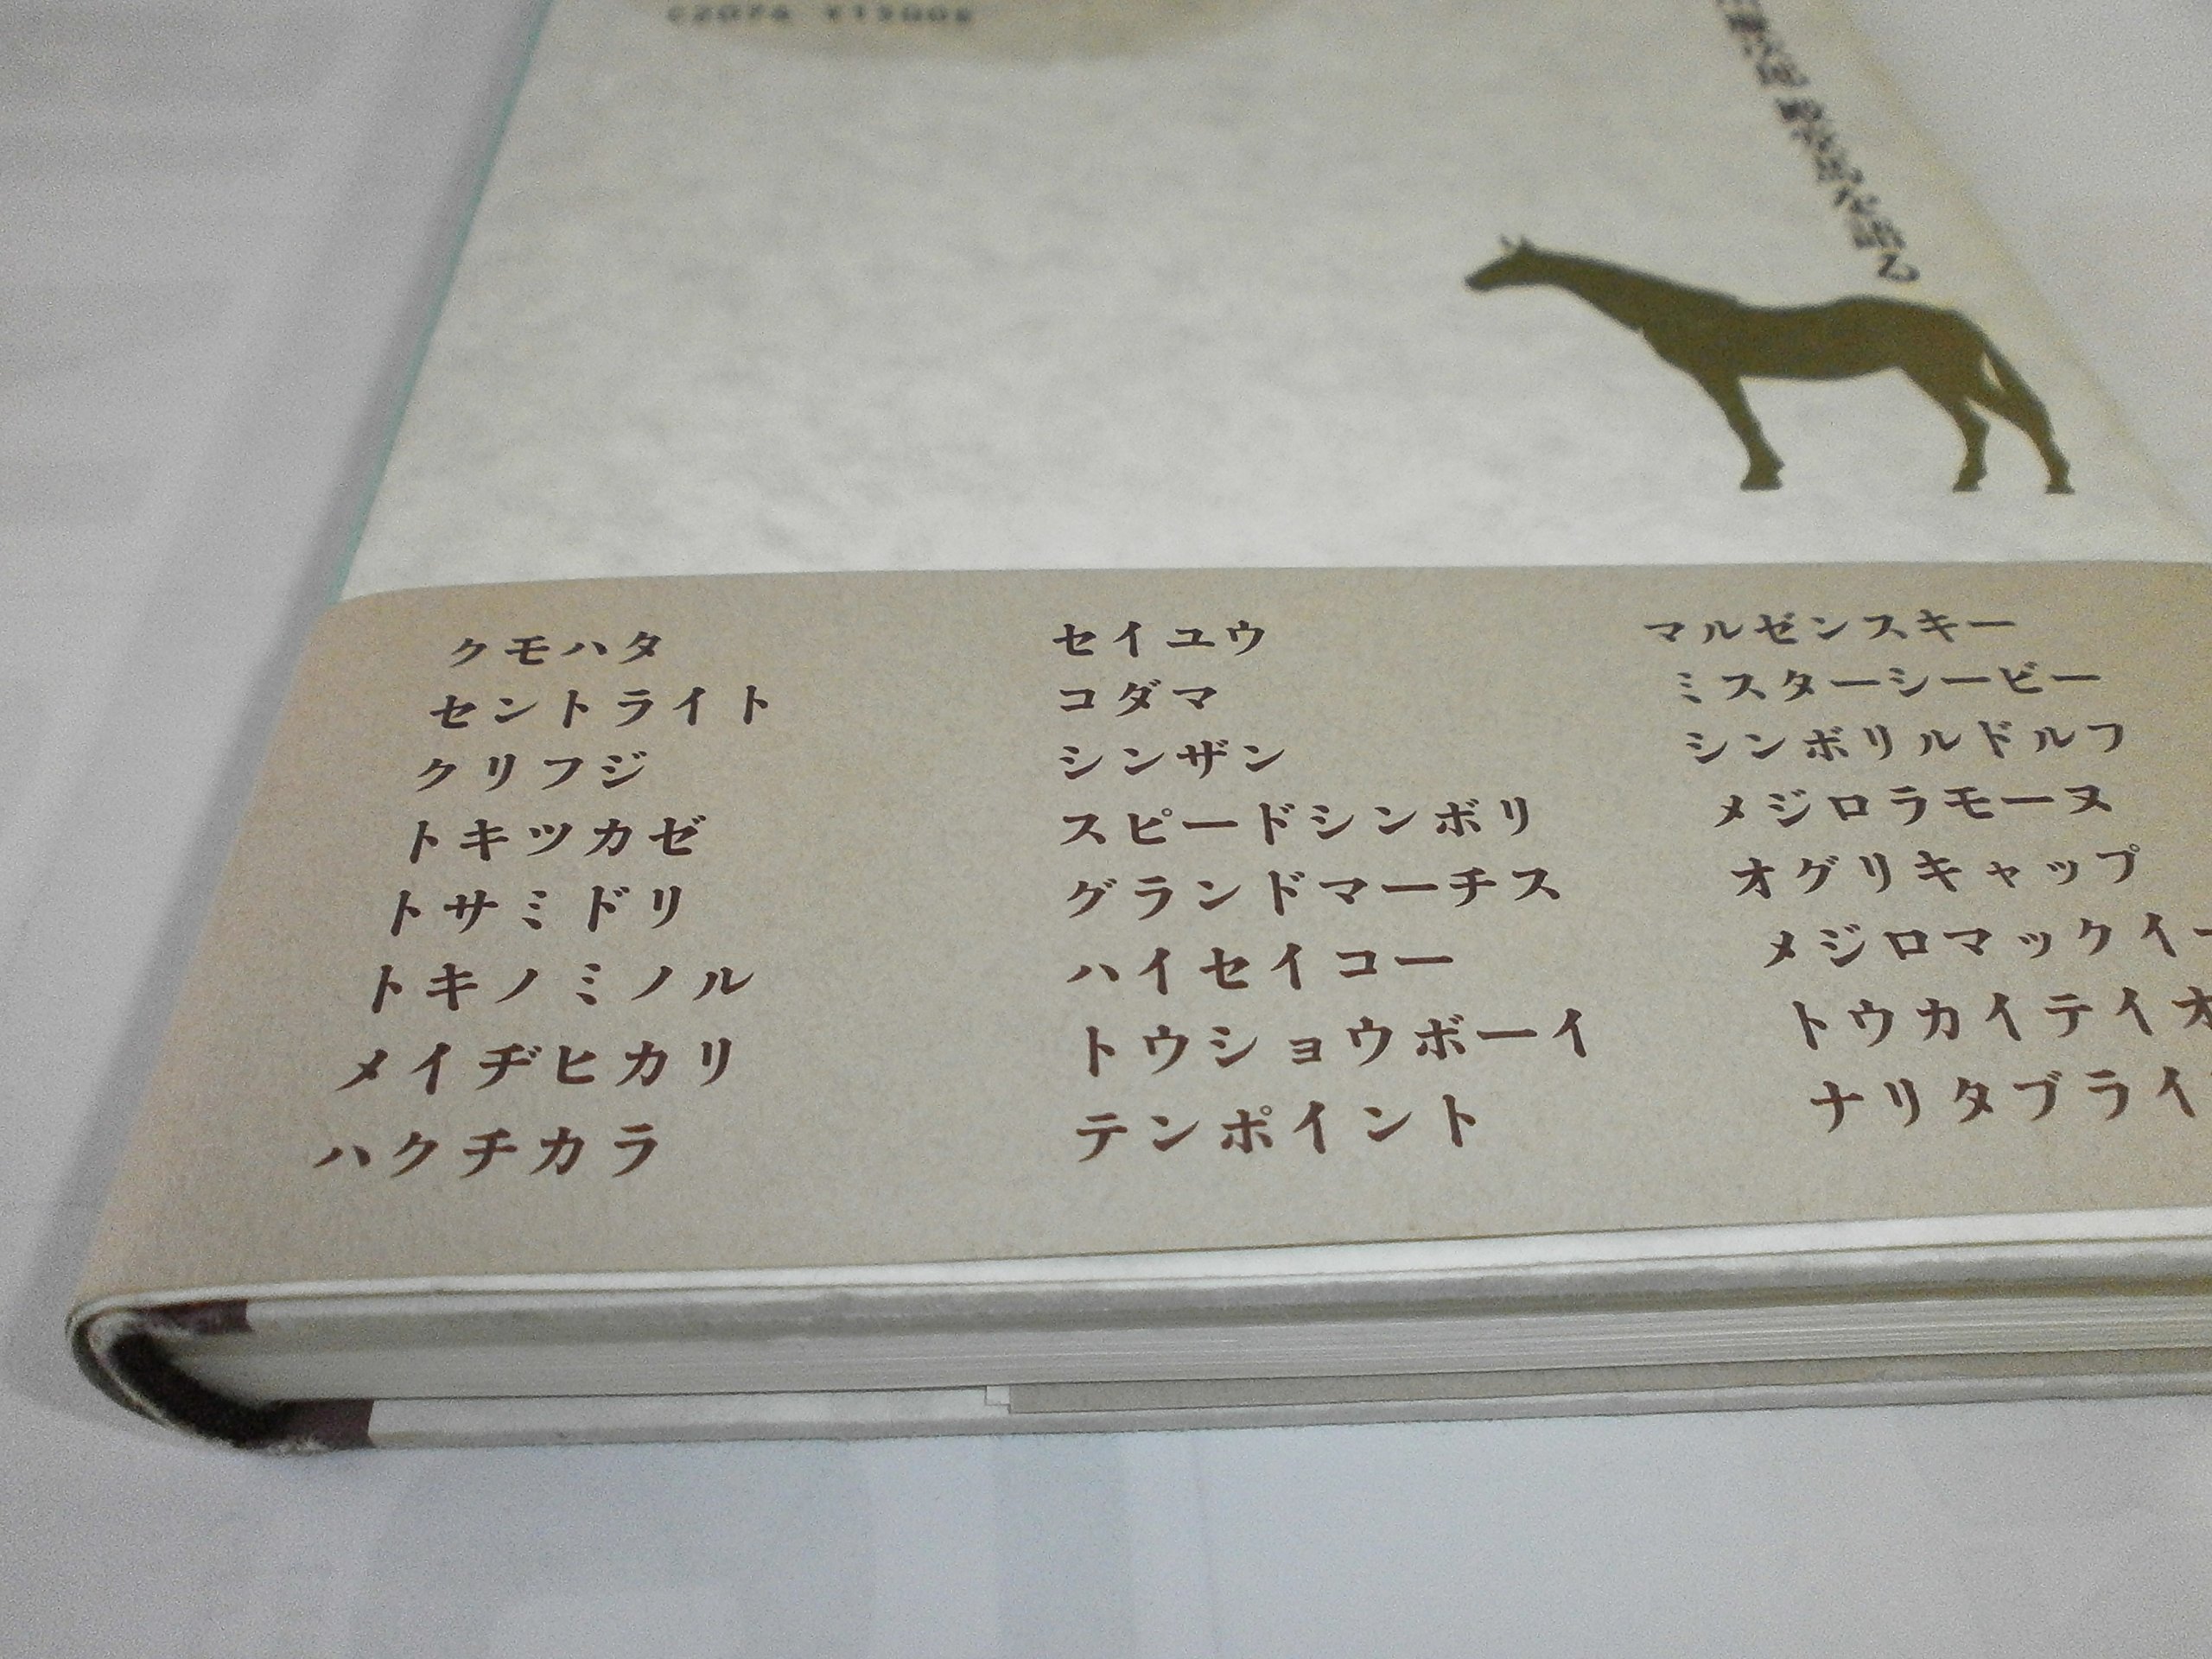 C2076 ¥1300E
クモハタ
セントライト
クリフジ
トキツカゼ
トサミドリ
トキノミノル
メイヂヒカリ
ハクチカラ
セイユウ
コダマ
シンザン
スピードシンボリ
グランドマーチス
ハイセイコー
トウショウボーイ
テンポイント
マルゼンスキー
ミスターシービー
シンボリルドルフ
メジロラモーヌ
オグリキャップ
メジロマックイー
トウカイテイオ
ナリタブライ